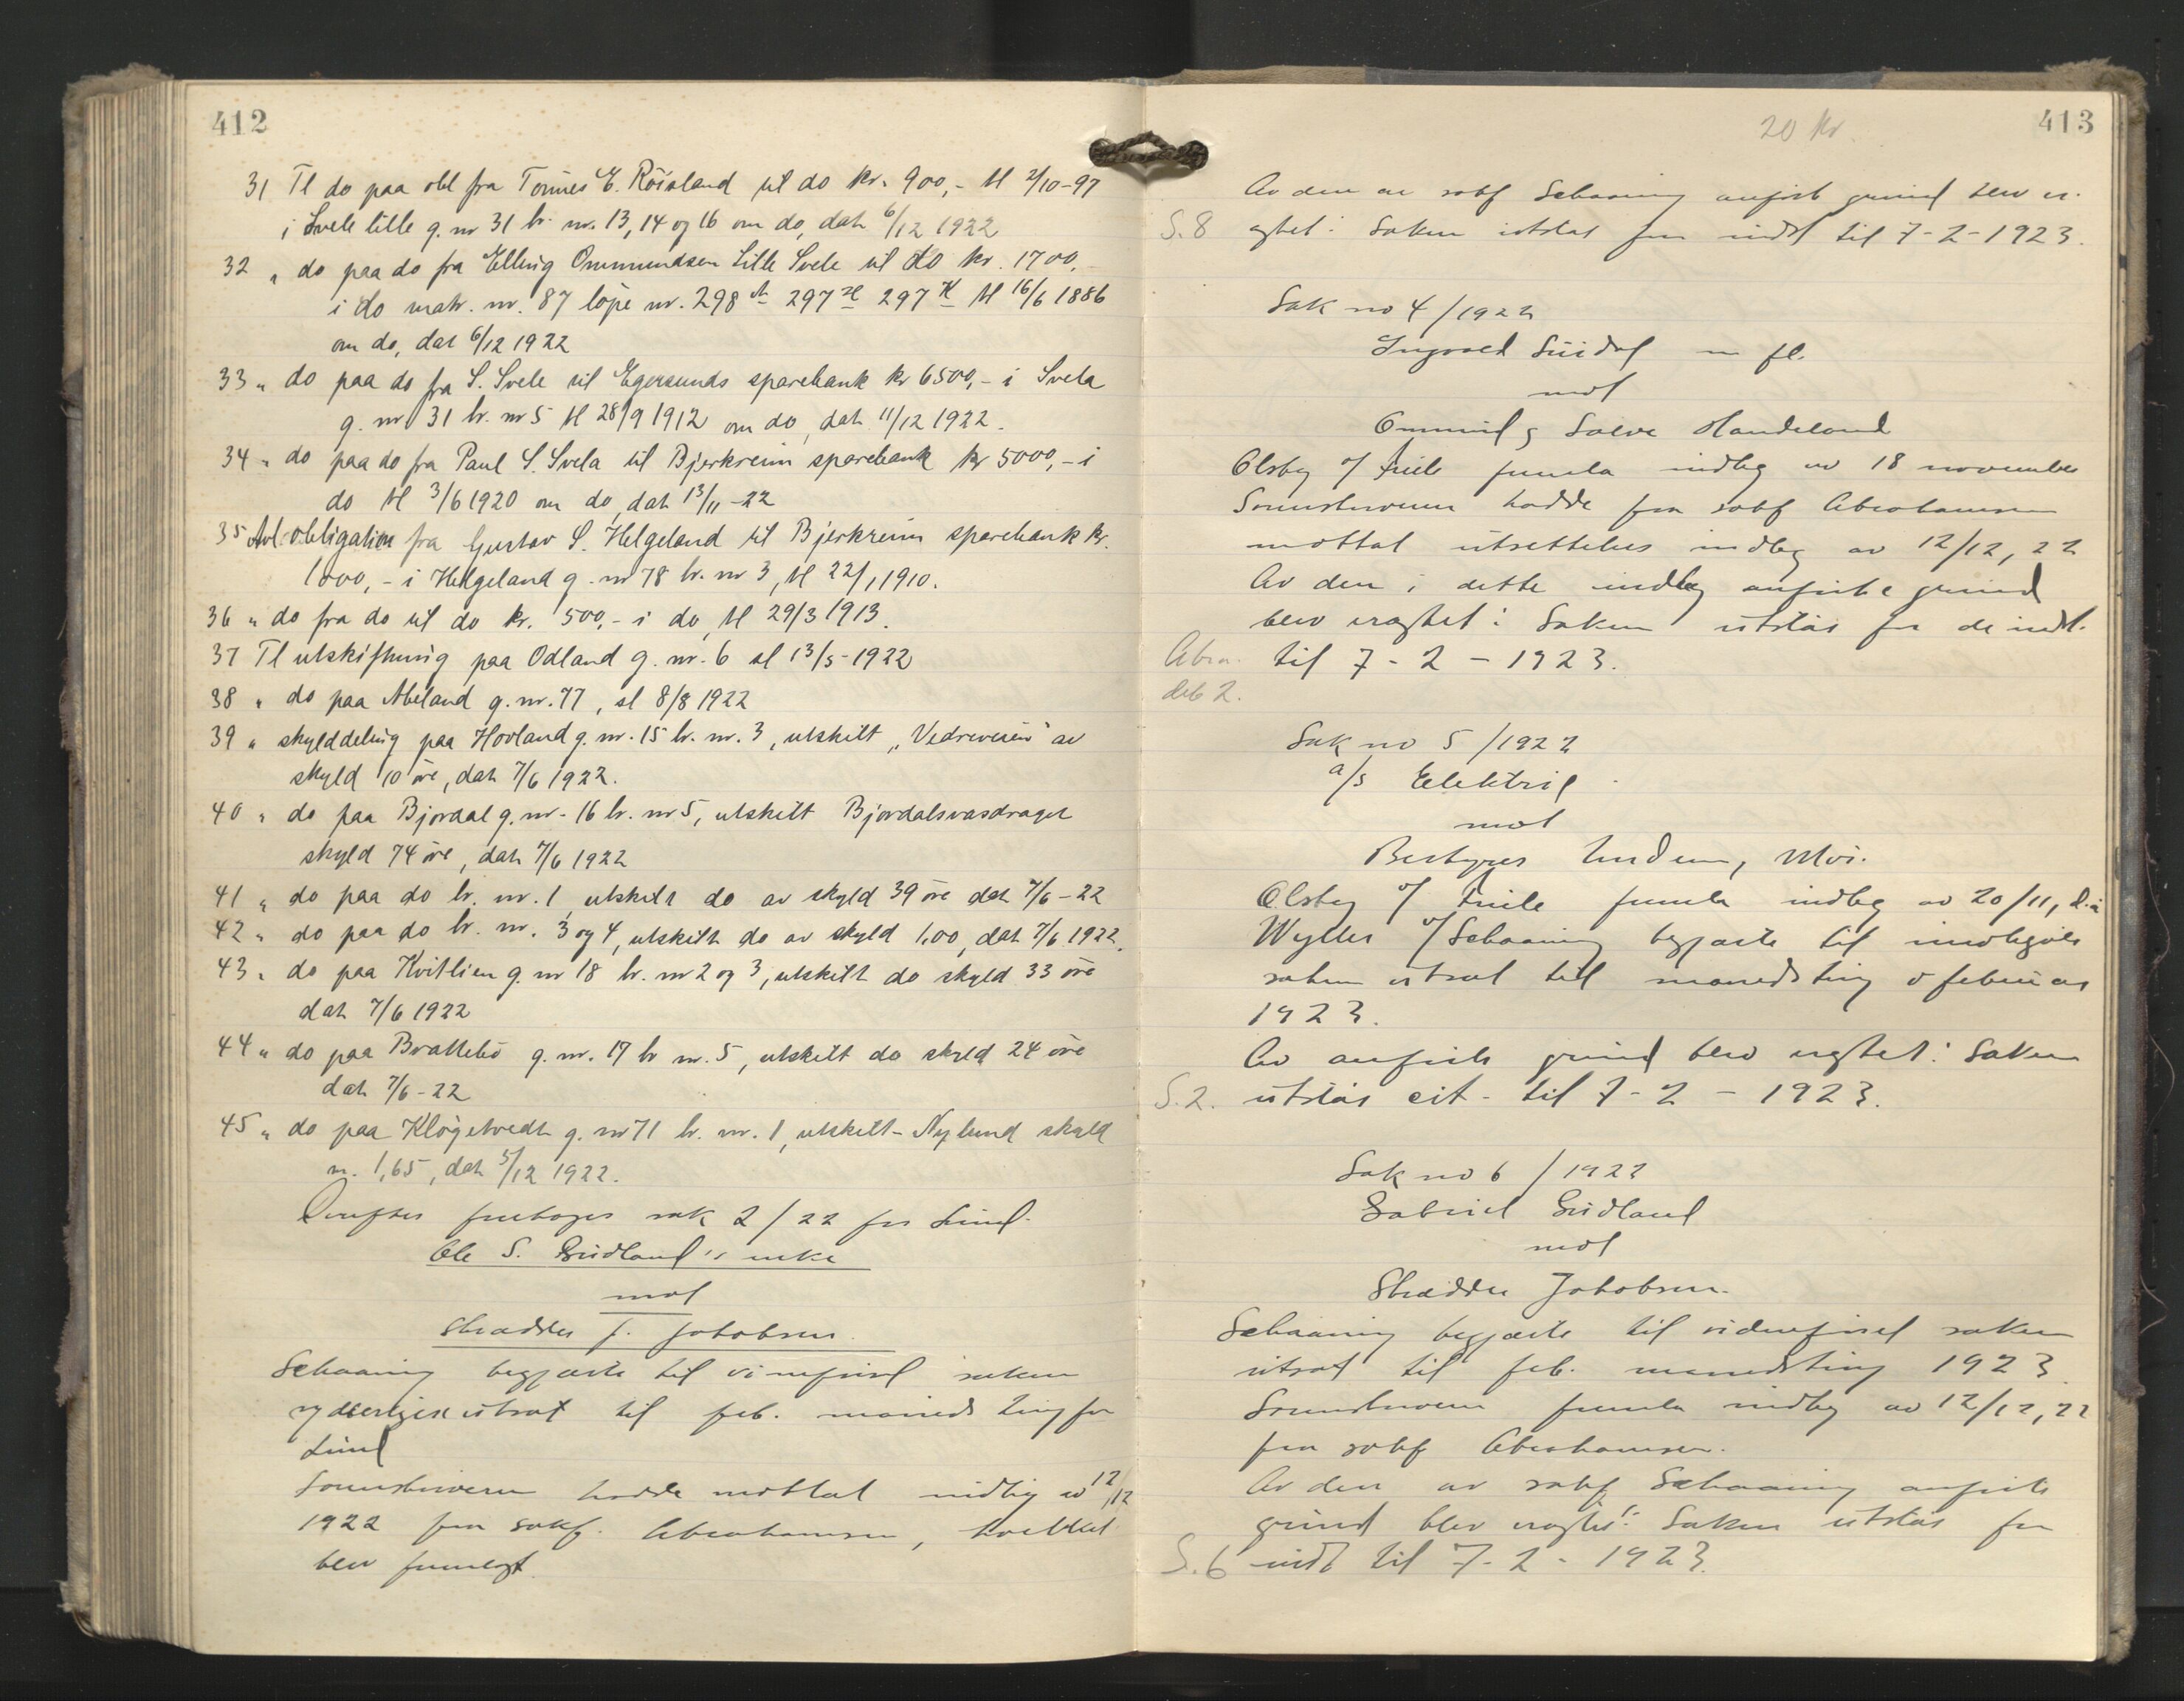 412
31 Tl do paa obl fra Tønnes E. Röisland til do kr. 900,- tl 2/10-97
i Svele lille g. nr 31 br. nr. 13, 14 og 16 om do, dat 6/12 1922
32 " do paa do fra Elling Ommundsen Lille Svele til do kr. 1700,-
i do matr. nr. 87 löpe nr. 298 297 297 tl 16/6 1886
om do, dat 6/12 1922
33 " do paa do fra S. Svele til Egersunds sparebank kr 6500,- i Svela
g. nr 31 br. nr 5 tl 28/9 1912 om do, dat 11/12 1922.
34 " do paa do fra Paul S. Svela til Bjerkreim sparebank kr 5000,- i
do tl 3/6 1920 om do, dat 13/11-22
35 Avl obligation fra Gustav S. Helgeland til Bjerkreim sparebank kr.
1000,- i Helgeland g. nr 78 br. nr 3, tl 22/1 1910.
36 " do fra do til do kr. 500,- i do, tl 29/3 1913.
37 Tl utskiftning paa Odland g. nr. 6 sl 13/5-1922
38 " do paa Abeland g. nr. 77, sl 8/8 1922
39 " skylddeling paa Hovland g. nr. 15 br. nr. 3, utskilt " av
skyld 10 öre, dat 7/6 1922.
40 " do paa Bjordal g. nr. 16 br. nr 5, utskilt Bjordalsvasdraget
skyld 74 öre, dat 7/6 1922
41 " do paa do br. nr. 1 utskilt do av skyld 39 öre dat 7/6-22
42 " do paa do br. nr. 3 og 4, utskilt do av skyld 1,00, dat 7/6 1922.
43 " do paa Kvitlien g. nr 18 br. nr 2 og 3, utskilt do skyld 33 öre
dat 7/6 1922
44 " do paa Brattebö g. nr. 17 br nr. 5, utskilt do skyld 24 öre
dat 7/6-22
45 " do paa Klögetvedt g. nr 71 br. nr. 1, utskilt Nylund skyld
m. 1,65, dat 5/12 1922.
Derefter foretoges sak 2/22 for Lund.
Ole S. Gudland's enke
mot
Skrædder J. Jakobsen.
Schaaning begjærte til saken
ydderligere utsat til feb. maaneds ting for
Lund
Sorenskriveren hadde mottat indlæg av 12/12
1922 fra sakf. Abrahamsen, hvilket
blev fremlagt.
413
20 kr.
Av den av sakf Schaaning anførte grund blev er-
S.8 agtet: Saken utstaar for indst til 7-2-1923.
Sak no 4/1922
Ingvald m fl.
mot
Ommund og Salve Handeland
Olsby fremla indlæg av 18 november
Sorenskriveren hadde fra sakf Abrahamsen
mottat utsettelses indlæg av 12/12, 22
Av den i dette indlæg anførte grund
blev eragtet: Saken utstaar for de indst.
Abra. til 7-2-1923.
deb 2.
Sak no 5/1922
a/s Elektril
mot
Bestyrer Moi.
Olsby fremla indlæg av 20/11, d. å
Wyller o/ Schaaning begjærte til imøtegåelse
saken utsat till maanedsting i februar
1923.
Av anførte grund blev eragtet: Saken
S.2. utstaar cit. til 7-2-1923.
Sak no 6/1922
Gabriel Gudland
mot
Skrædder Jakobsen.
Schaaning begjærte til saken
utsat til feb. maanedsting 1923.
Sorenskriveren fremla indlæg av 12/12, 22
fra sakf Abrahamsen.
Av den av sakf Schaaning anførte
grund blev eragtet: Saken utstaar for
S.6 indst til 7-2-1923.